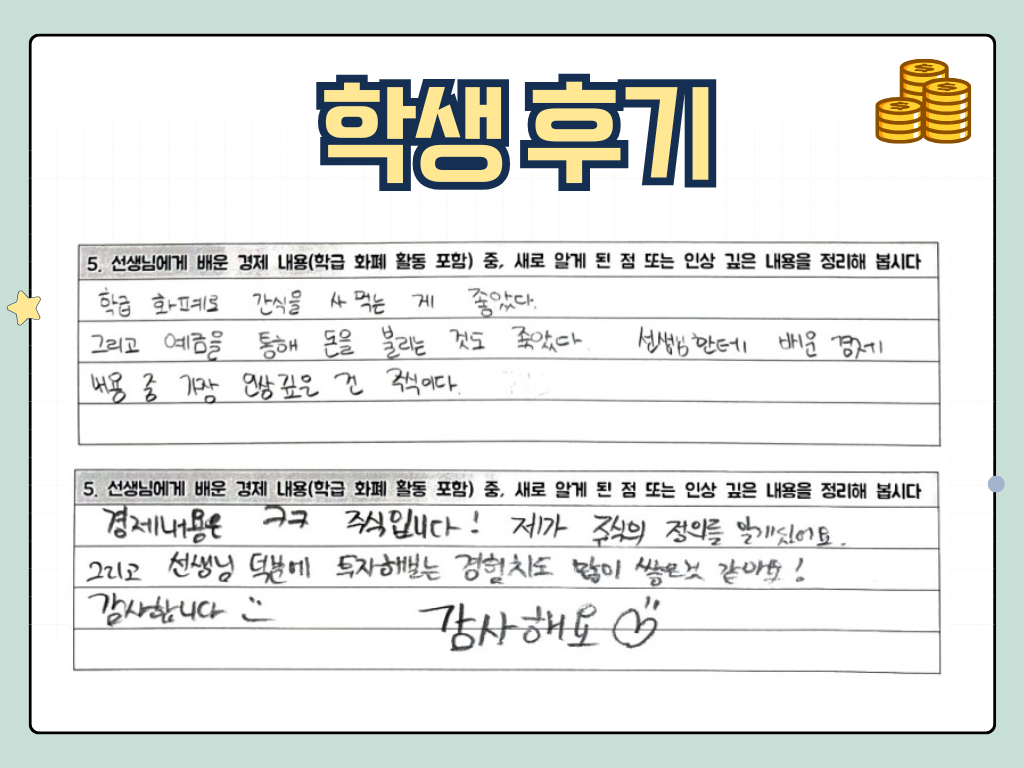 학생 후기
5. 선생님에게 배운 경제 내용(학급 화폐 활동 포함) 중, 새로 알게 된 점 또는 인상 깊은 내용을 정리해 봅시다
학급 화폐로 간식을 사 먹는 게 좋았다.
그리고 예금을 통해 돈을 불리는 것도 좋았다. 선생님한테 배운 경제
내용 중 가장 인상 깊은 건 주식이다.
5. 선생님에게 배운 경제 내용(학급 화폐 활동 포함) 중, 새로 알게 된 점 또는 인상 깊은 내용을 정리해 봅시다
경제내용은 ㅋㅋ 주식입니다! 제가 주식의 정의를 알게 됬어요.
그리고 선생님 덕분에 투자해보는 경험치도 많이 쌓은것 같아요!
감사합니다 감사해요